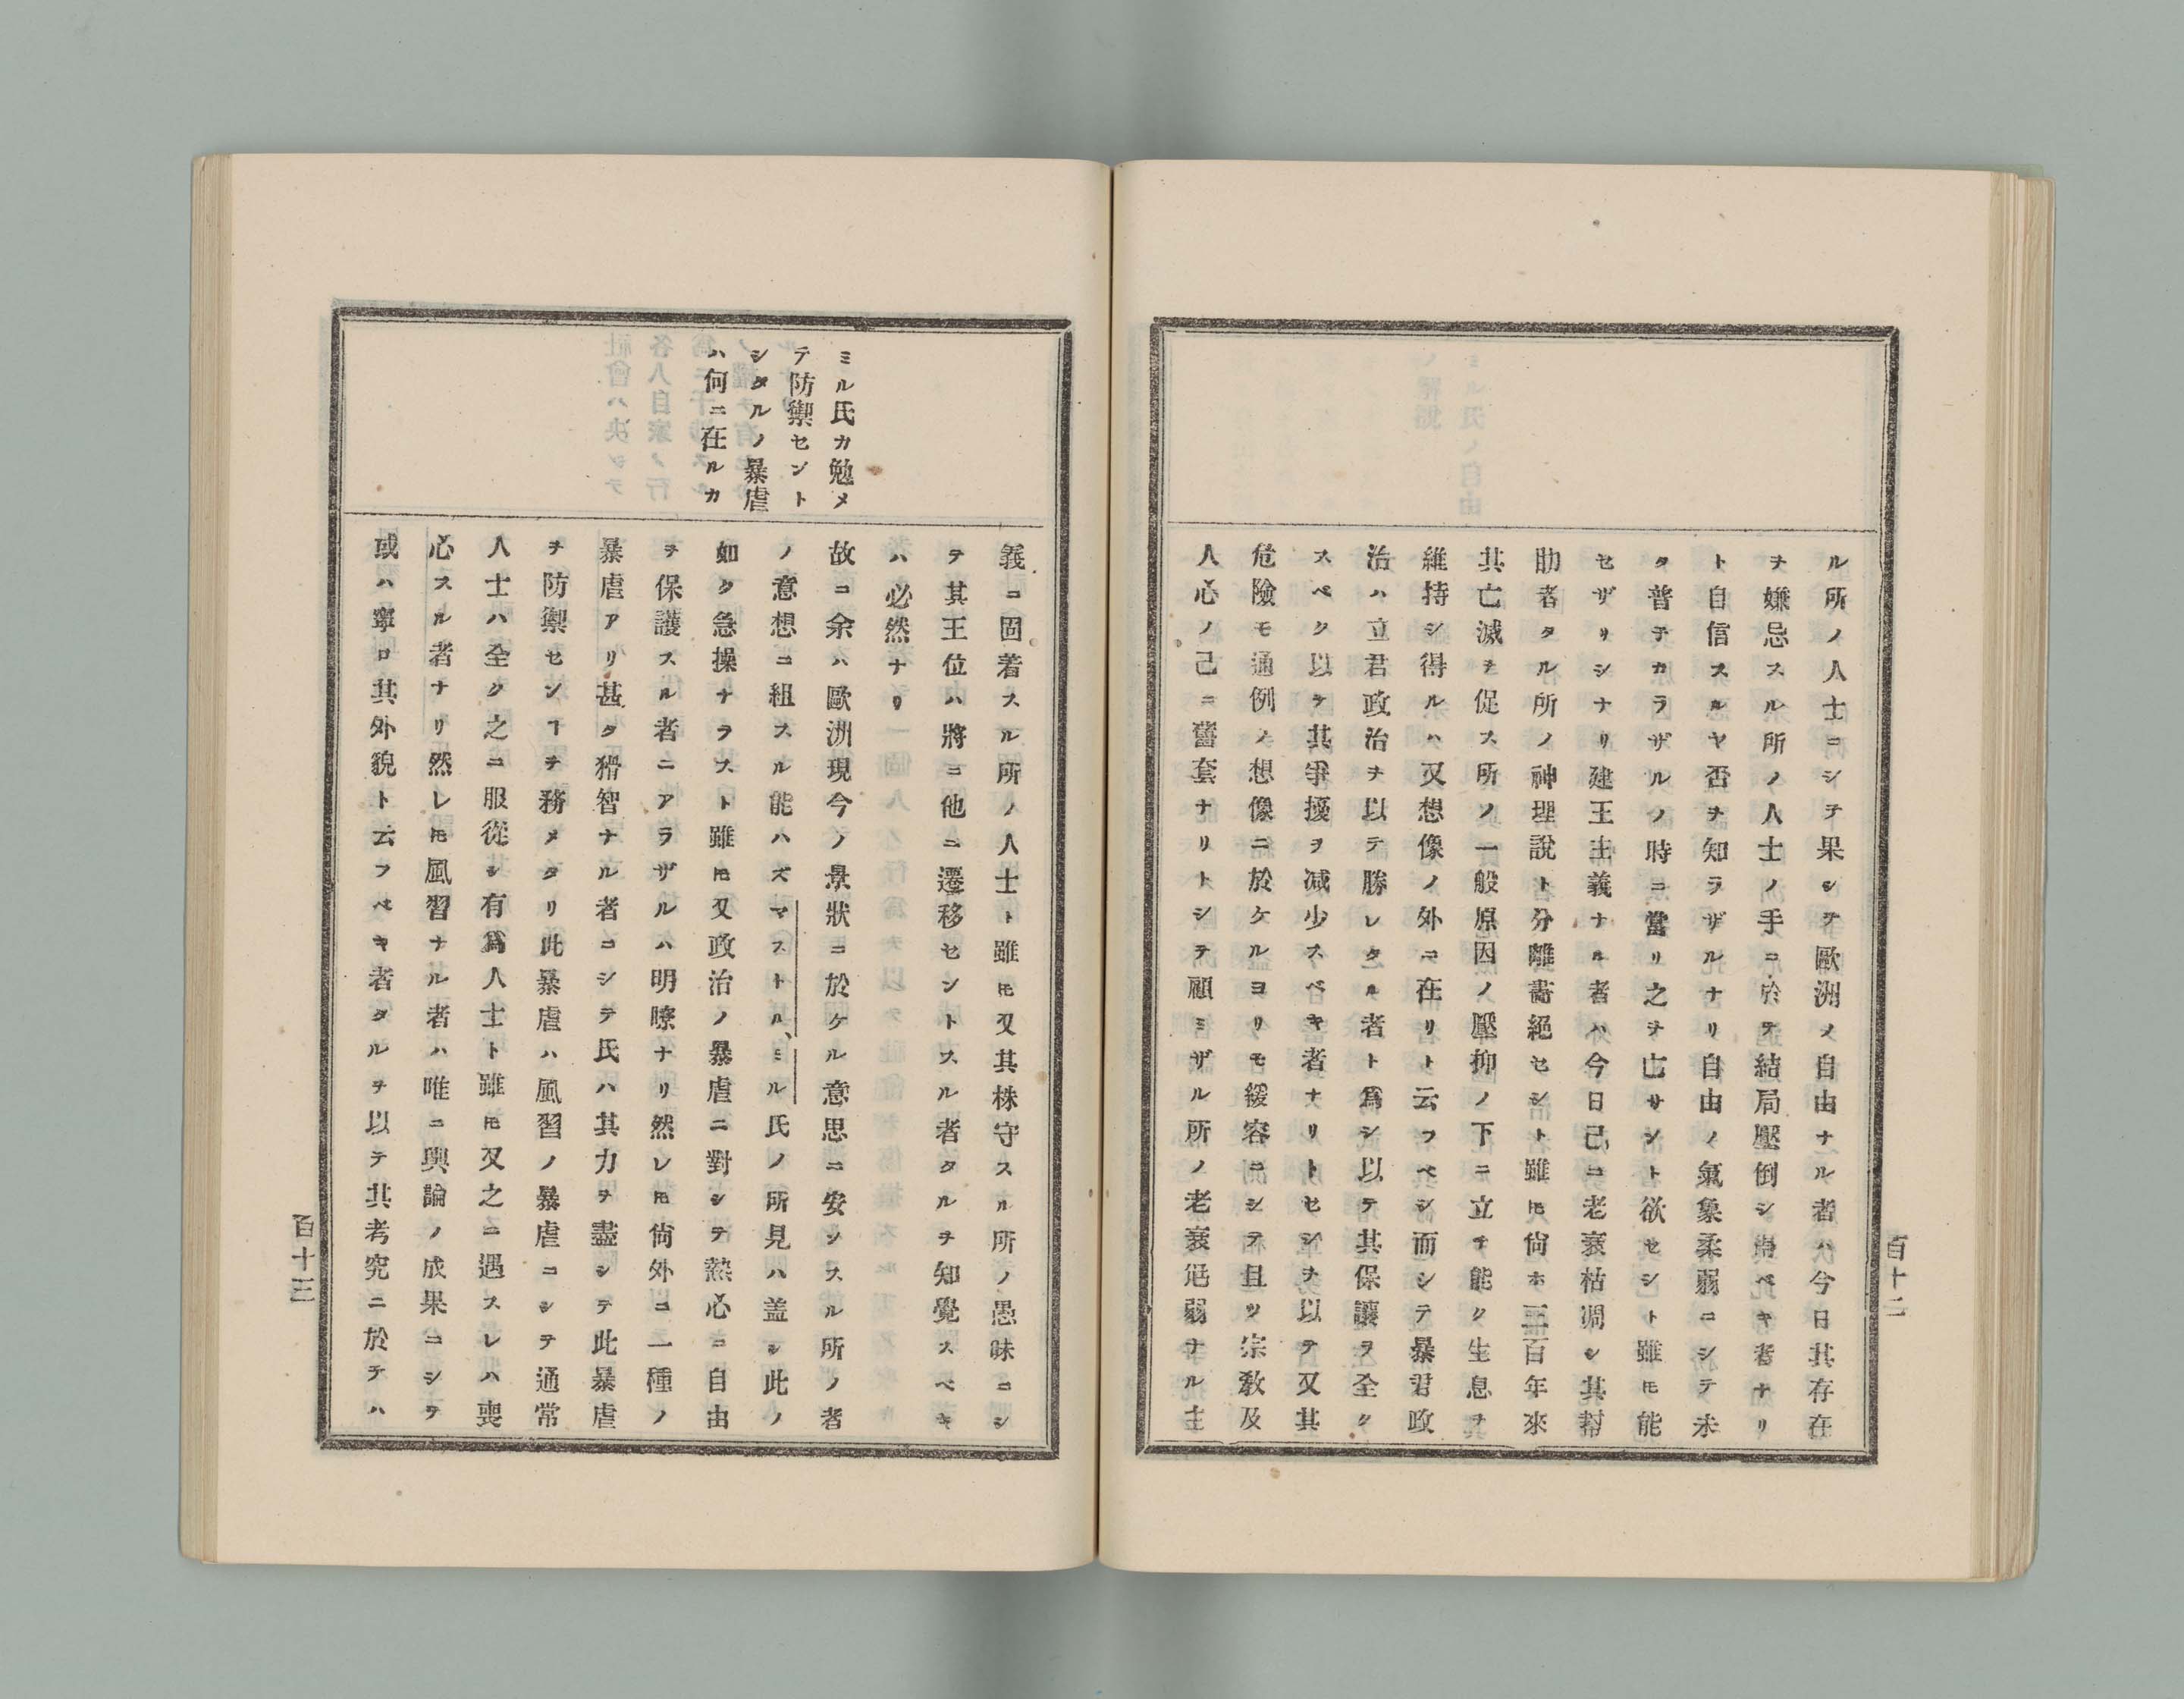 ル所ノ人士ニシテ果シテ歐洲ノ自由ナル者ハ今日其存在
ヲ嫌忌スル所ノ人士ノ手ニ於テ結局壓倒シ ベキ者ナリ
ト自信スルヤ否ヲ知ラザルナリ自由ノ氣象柔弱ニシテ未
タ普チカラザルノ時ニ當リ之ヲ亡サント欲セシト雖𪜈能
セザリシナリ建王主義ナル者ハ今日已ニ老衰枯凋シ其幇
助者タル所ノ神理說ト分離 絕セシト雖𪜈尙ホ三百年來
其亡滅ヲ促ス所ノ一般原因ノ壓抑ノ下ニ立チ能ク生息ヲ
維持シ得ルハ又想像ノ外ニ在リト云フベシ而シテ暴君政
治ハ立君政治ヲ以テ勝レタル者ト爲シ以テ其保護ヲ全ク
スベク以テ其爭擾ヲ减少スベキ者ナリトセシヲ以テ又其
危險モ通例ノ想像ニ於ケルヨリモ緩容ニシテ且ツ宗敎及
人心ノ己ニ舊套ナリトシテ顧ミザル所ノ老衰尫弱ナル主
百十二
ミル氏カ勉メ
テ防禦セント
シタルノ暴虐
ハ何ニ在ルカ
義ニ固着スル所ノ人士ト雖𪜈又其株守スル所ノ愚昧ニシ
テ其王位ハ將ニ他ニ遷移セントスル者タルヲ知覺スベキ
ハ必然ナリ
故ニ余ハ歐洲現今ノ景狀ニ於ケル意思ニ安ンスル所ノ者
ノ意想ニ組スル能ハズマストル、ミル氏ノ所見ハ盖シ此ノ
如ク急操ナラスト雖𪜈又政治ノ暴虐ニ對シテ熱心ニ自由
ヲ保護スル者ニアラザルハ明瞭ナリ然レ𪜈尙外ニ一種ノ
暴虐アリ甚タ猾智ナル者ニシテ氏ハ其力ヲ盡シテ此暴虐
ヲ防禦センヿヲ務メタリ此暴虐ハ風習ノ暴虐ニシテ通常
人士ハ全ク之ニ服從シ有爲人士ト雖𪜈又之ニ遇スレハ喪
心スル者ナリ然レ𪜈風習ナル者ハ唯ニ輿論ノ成果ニシテ
或ハ寧ロ其外貌ト云フベキ者タルヲ以テ其考究ニ於テハ
百十三